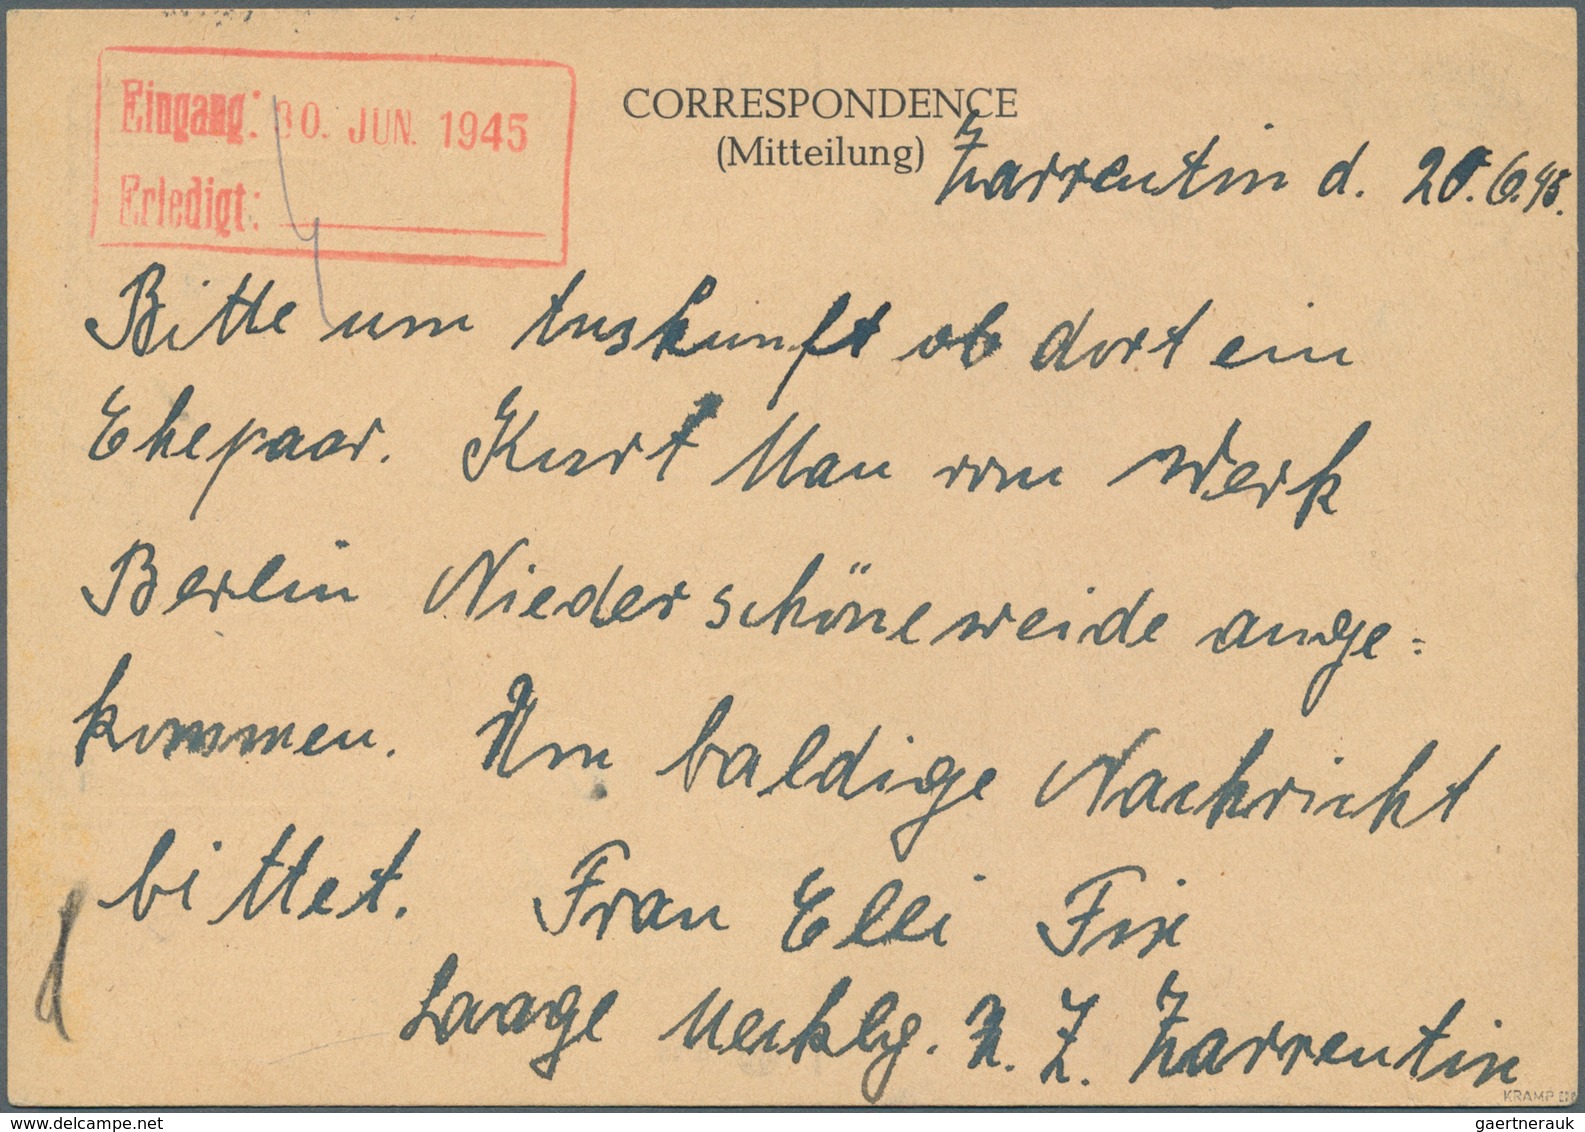 Eingang: 30. JUN. 1945
Erledigt:
CORRESPONDENCE
(Mitteilung)
Zarrentin d. 20.6.45.
Bitte um Auskunft ob dort ein
Ehepaar. Kurt Man vom Werk
Berlin Niederschöneweide ange=
kommen. Um baldige Nachricht
bittet. Frau Elli Fix
Laage Mecklg. z. Z. Zarrentin
KRAMP
gaertnerauk
delcampe.net